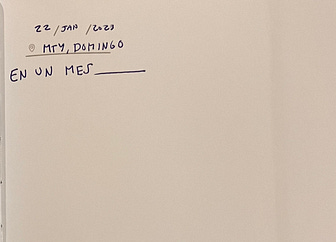 22/JAN/2023
MTY, DOMINGO
EN UN MES